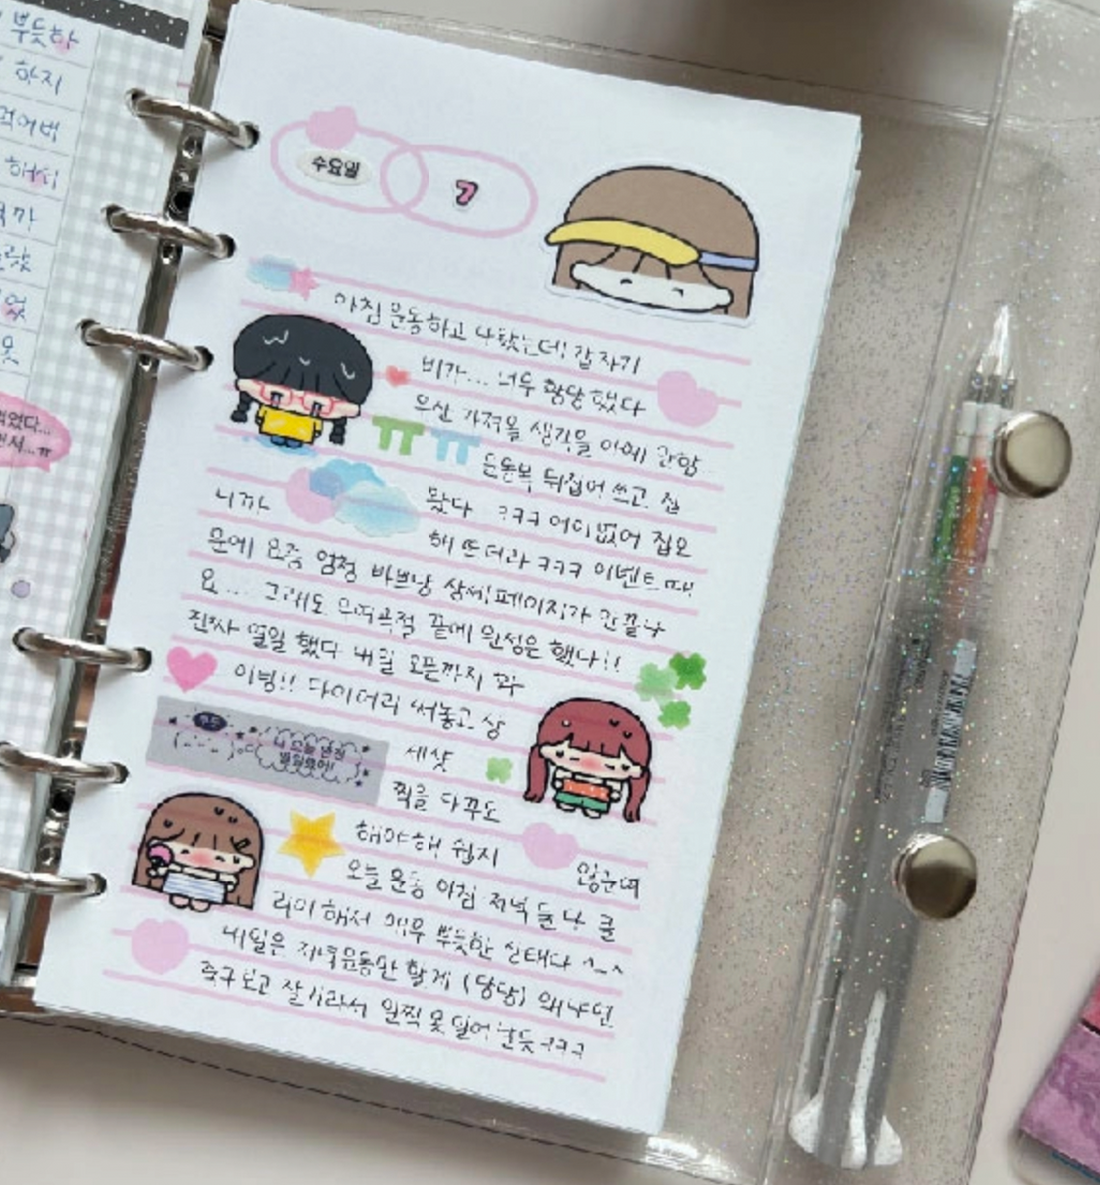 뿌듯하
하지
먹어버
해서
수요일
7
아침 운동하고 나왔는데! 갑자기
비가... 너무 황당했다
우산 가져올 생각을 아예 안함
ㅠㅠ
운동복 뒤집어 쓰고 집
니까
왔다 ㅋㅋㅋ 어이없어 집오
해 뜬 더라 ㅋㅋㅋ 이벤트 때
문에 요즘 엄청 바쁘당 상세페이지가 안끝나
요... 그래도 우여곡절 끝에 완성은 했다!!
진짜 열일 했다 내일 오픈까지 화
이팅!! 다이어리 써놓고 상
세샷
찍을 다꾸도
해야해 쉽지
않군여
오늘 운동 아침 저녁 둘 다 클
리어 해서 매우 뿌듯한 상태다 ^_^
내일은 저녁운동만 할게 (당당) 왜냐면
축구보고 잘거라서 일찍 못 일어날듯 ㅋㅋㅋ